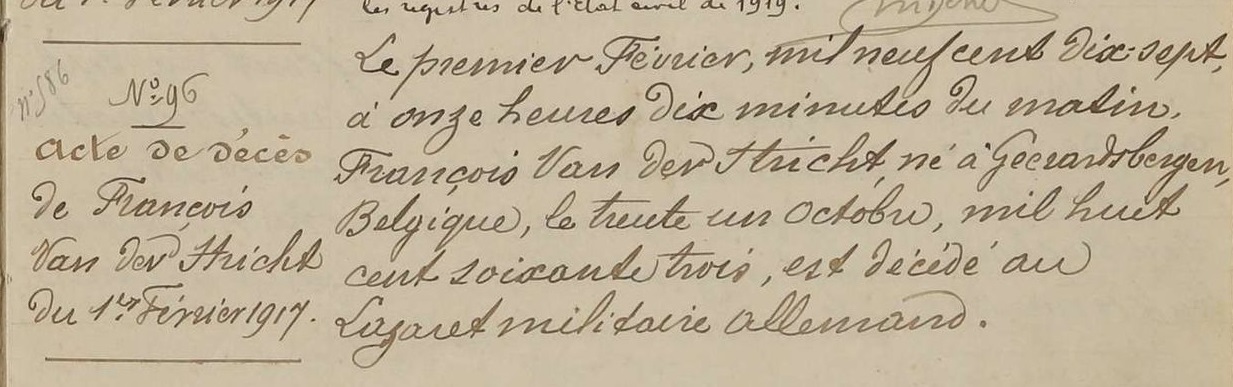 les registres de l'Etat civil de 1919.
n° 586
No 96
acte de décès
de François
Van der Stricht
du 1er Février 1917.
Le premier Février, mil neuf cent Dix-sept,
à onze heures Dix minutes du matin.
François Van der Stricht, né à Geerardsbergen,
Belgique, le trente un Octobre, mil huit
cent soixante trois, est décédé au
Lazaret militaire Allemand.